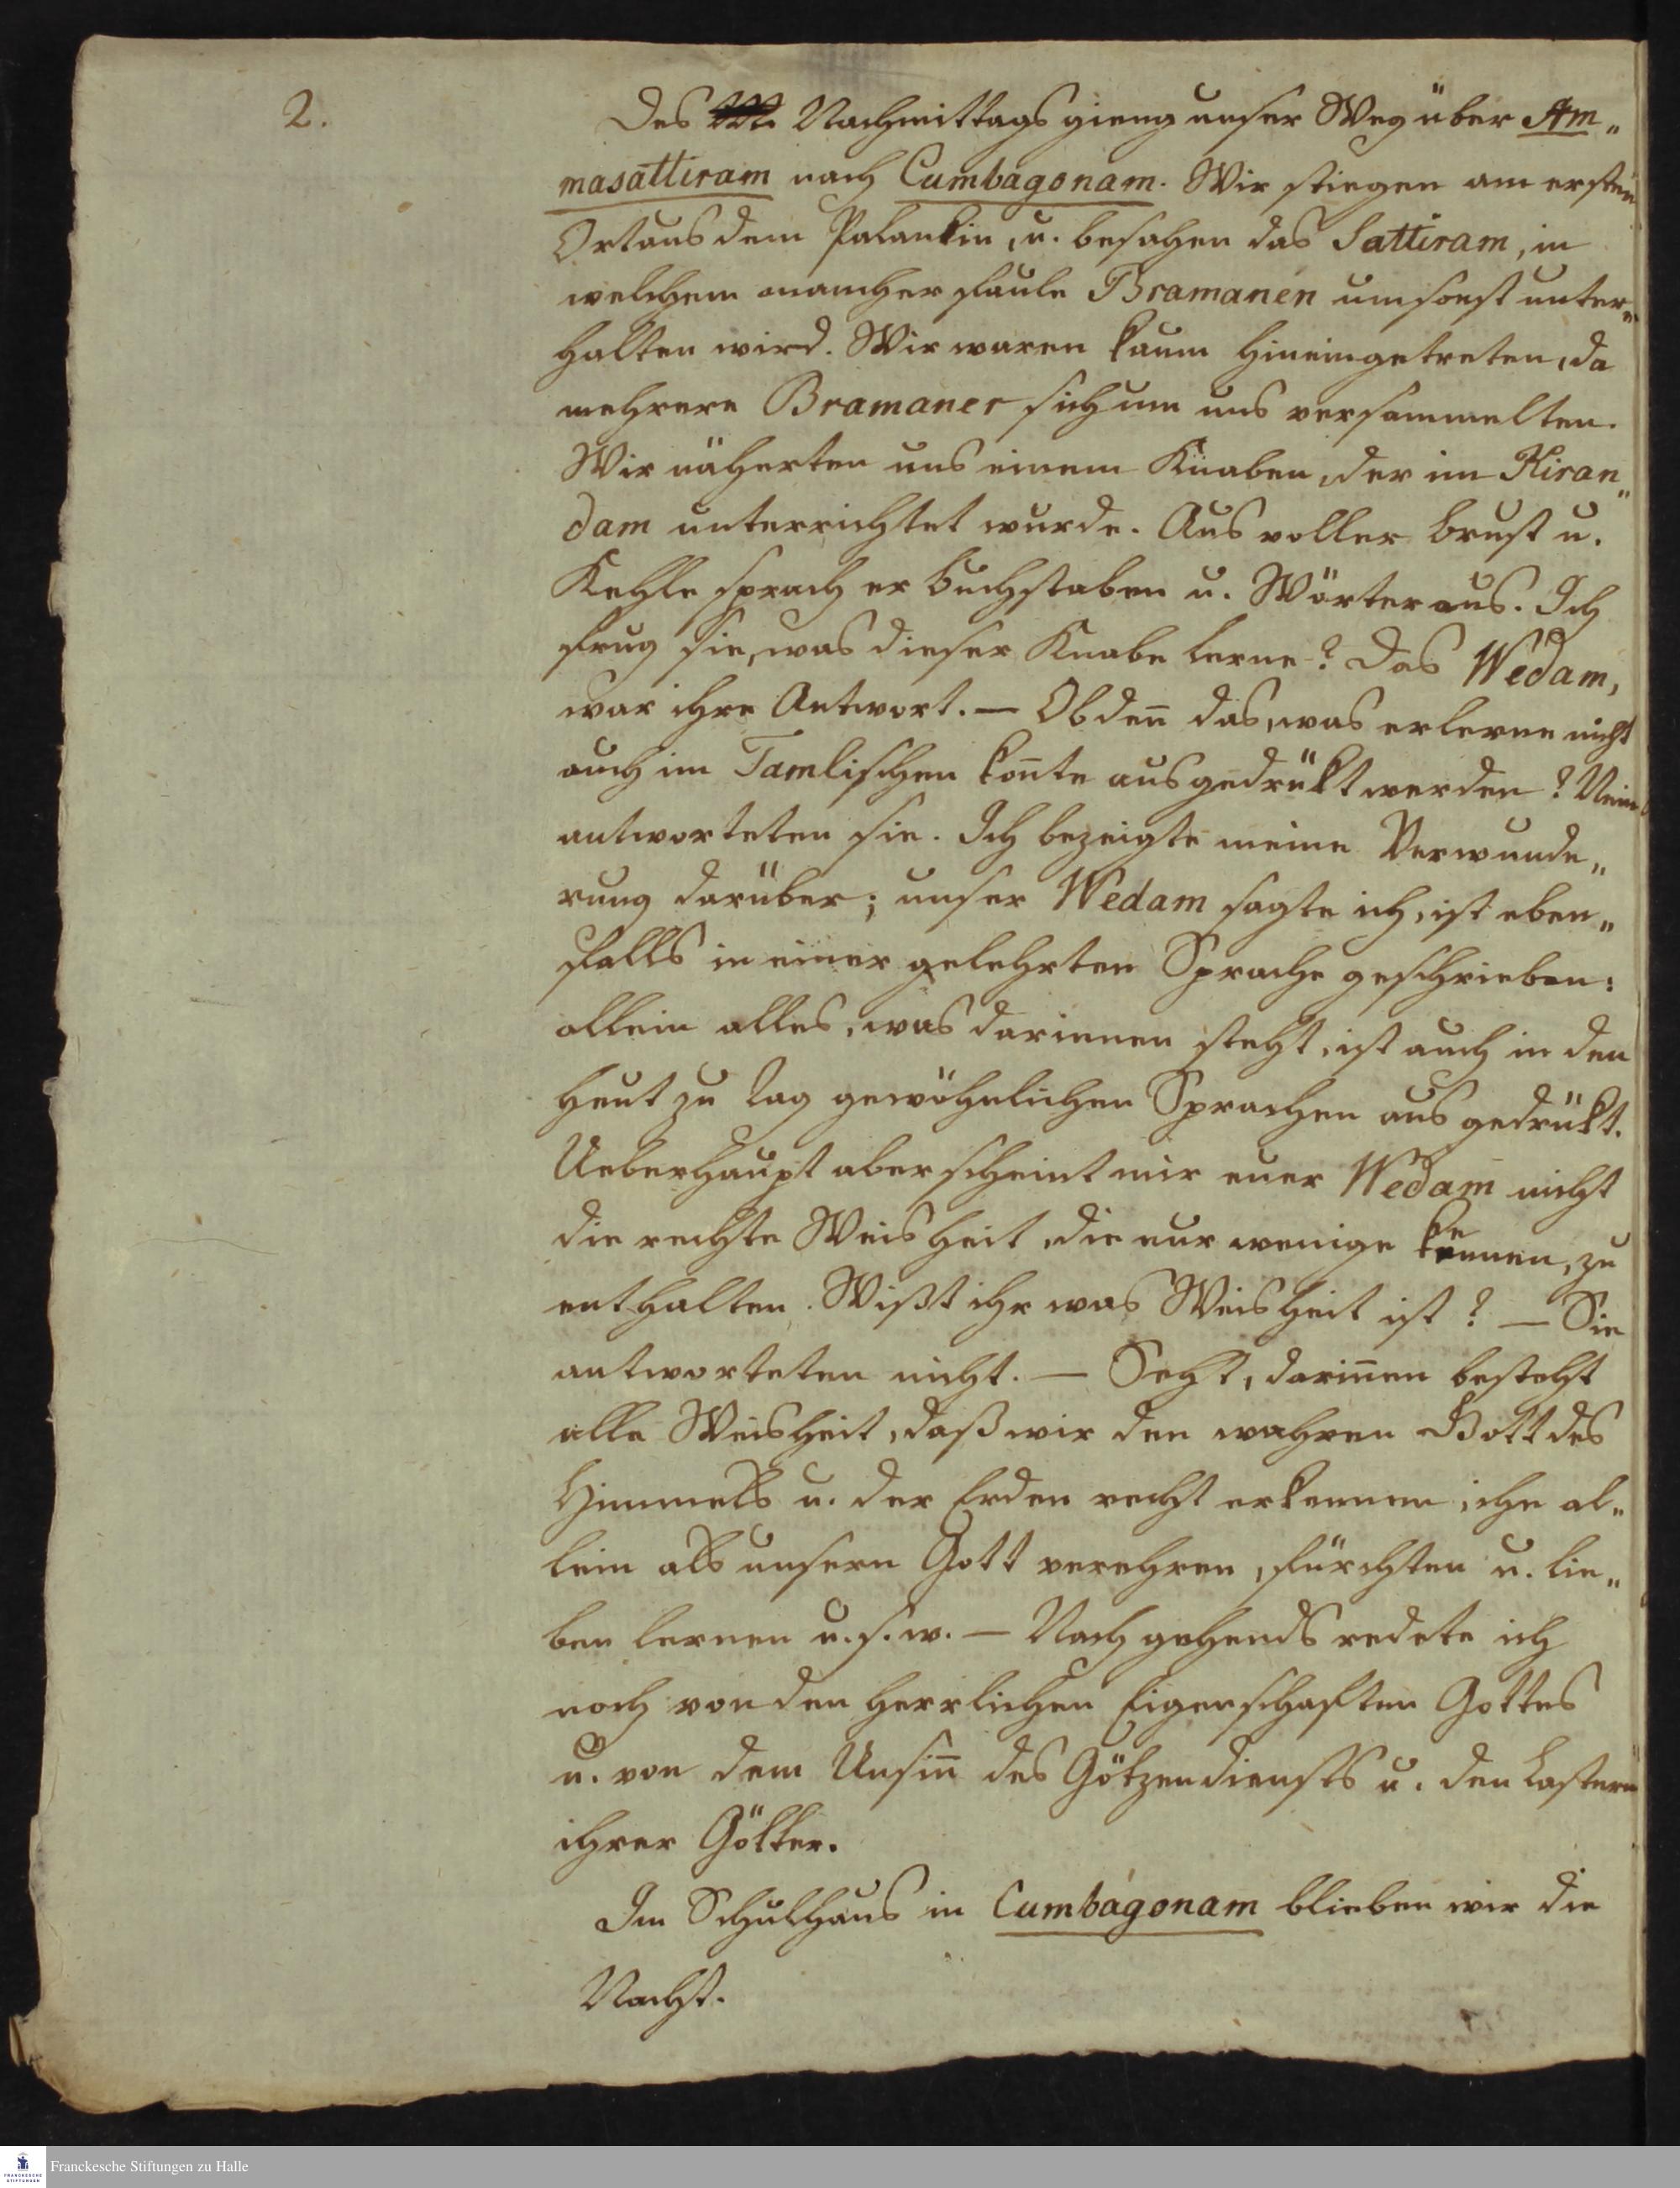 2.
Des Nachmittags gieng unser Weg über Am„
masattiram nach Cumbagonam. Wir stiegen am ersten
Ort aus dem Palankin, u. besahen das Sattiram, in
welchem mancher faule Bramanen umsonst unter„
halten wird. Wir waren kaum hineingetreten, da
mehrere Bramaner sich um uns versammelten.
Wir näherten uns einem Knaben, der im Kiran„
dam unterrichtet wurde. Aus voller Brust u.
Kehle sprach er Buchstaben u. Wörter aus. Ich
frug sie, was dieser Knabe lerne? Das Wedam,
war ihre Antwort. — Ob den̄ das, was er lerne nicht
auch im Tamlischen kon̄te ausgedrükt werden? Nein
antworteten sie. Ich bezeigte meine Verwunde„
rung darüber; unser Wedam sagte ich, ist eben„
falls in einer gelehrten Sprache geschrieben:
allein alles, was darinnen steht, ist auch in den
heut zu Tag gewöhnlichen Sprachen ausgedrükt.
Ueberhaupt aber scheint mir euer Wedam nicht
die rechte Weisheit, die nur wenige kennen, zu
enthalten. Wißt ihr was Weisheit ist? — Sie
antworteten nicht. — Seht, darin̄en besteht
alle Weisheit, daß wir den wahren Gott des
Himmels u. der Erden recht erkennen, ihn al„
lein als unsern Gott verehren, fürchten u. lie„
ben lernen u. s. w. — Nachgehends redete ich
noch von den herrlichen Eigenschaften Gottes
u. von dem Unsin̄ des Götzendiensts u. den Lastern
ihrer Götter.
Im Schulhaus in Cumbagonam blieben wir die
Nacht.
Franckesche Stiftungen zu Halle